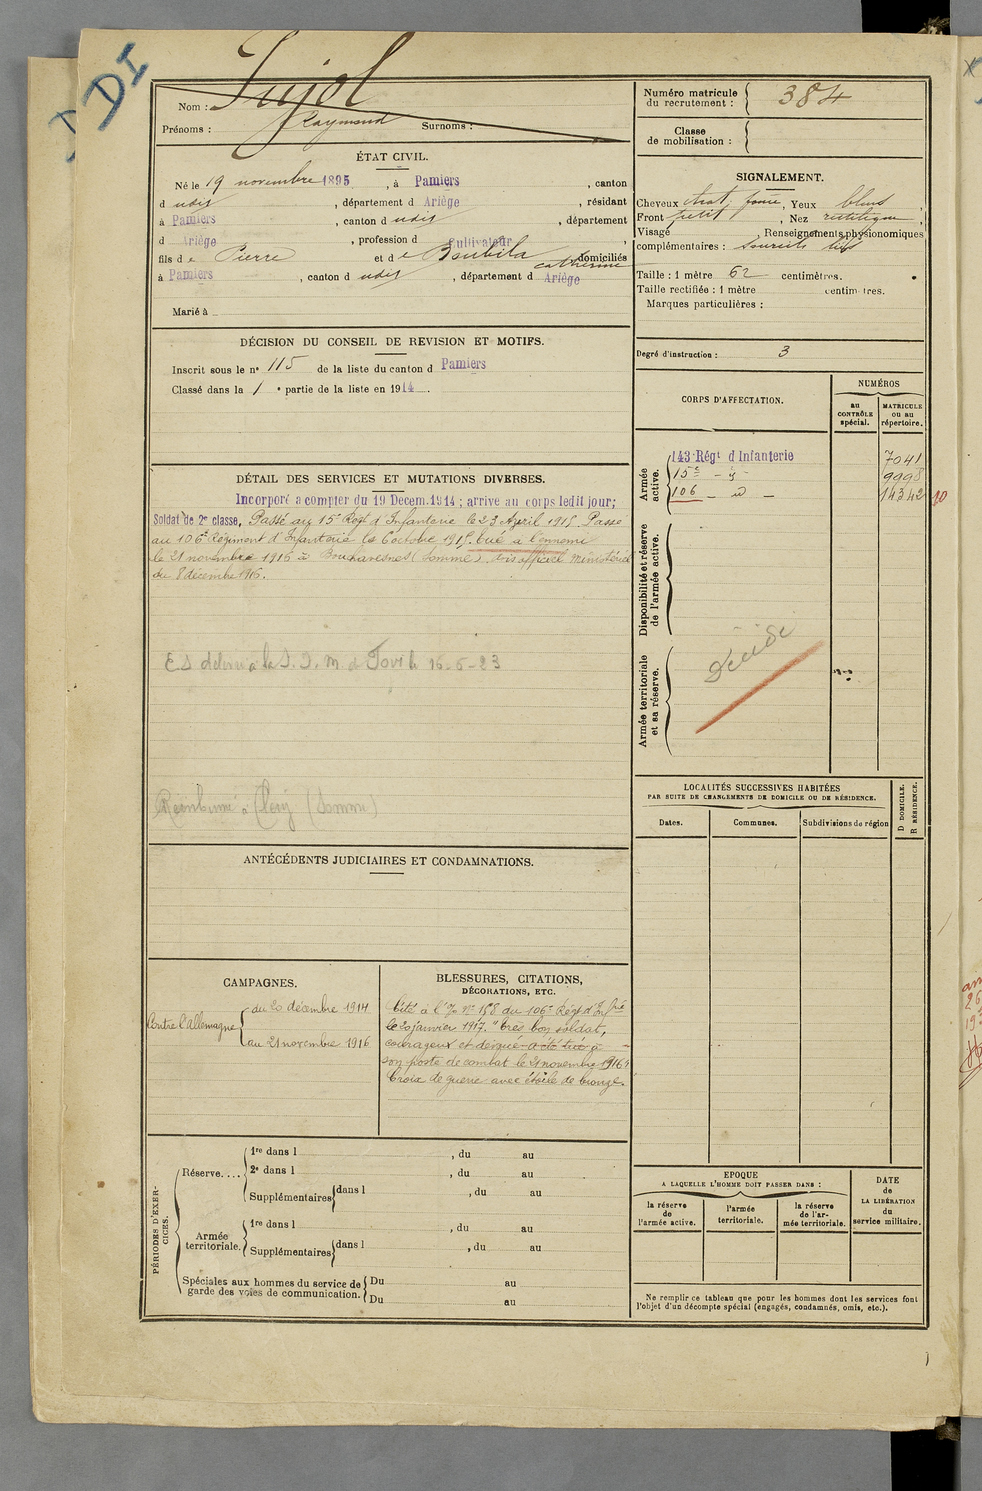 DDI
Nom : Pujol
Prénoms : Raymond Surnoms :
Numéro matricule du recrutement : 384
Classe de mobilisation :
ÉTAT CIVIL.
Né le 19 novembre 1895, à Pamiers, canton
d udit, département d Ariège, résidant
à Pamiers, canton d udit, département
d Ariège, profession d cultivateur,
fils d e Pierre et d e Boubila Catherine domiciliés
à Pamiers, canton d udit, département d Ariège
Marié à
SIGNALEMENT.
Cheveux chat. foncé, Yeux bleus,
Front petit, Nez rectiligne,
Visage , Renseignements physionomiques
complémentaires : sourcils
Taille : 1 mètre 62 centimètres.
Taille rectifiée : 1 mètre centimètres.
Marques particulières :
Degré d'instruction : 3
DÉCISION DU CONSEIL DE REVISION ET MOTIFS.
Inscrit sous le nº 115 de la liste du canton d Pamiers
Classé dans la 1 e partie de la liste en 1914.
DÉTAIL DES SERVICES ET MUTATIONS DIVERSES.
Incorporé a compter du 19 Decem. 1914 ; arrive au corps ledit jour;
Soldat de 2e classe, Passé au 15e Regt d'Infanterie le 23 April 1915. Passé
au 106e Régiment d'Infanterie le 6 octobre 1915. Tué à l'ennemi
le 21 novembre 1916 à Bouchavesnes (Somme). Avis officiel Ministériel
du 8 décembre 1916.
16-6-23
Réinhumé à Clery (Somme)
CORPS D'AFFECTATION.
NUMÉROS
au CONTRÔLE spécial.
MATRICULE ou au répertoire.
Armée active.
143 Régt d'Infanterie 7041
15e - d° - 9998
106 - d° - 14342 10
Disponibilité et réserve de l'armée active.
Armée territoriale et sa réserve.
Décédé
LOCALITÉS SUCCESSIVES HABITÉES
PAR SUITE DE CHANGEMENTS DE DOMICILE OU DE RÉSIDENCE.
Dates. Communes. Subdivisions de région
D DOMICILE.
R RÉSIDENCE.
ANTÉCÉDENTS JUDICIAIRES ET CONDAMNATIONS.
CAMPAGNES.
Contre l'Allemagne
du 20 décembre 1914
au 21 novembre 1916
BLESSURES, CITATIONS,
DÉCORATIONS, ETC.
Cité à l'o/ nº 158 du 106e Régt d'Infrie
le 20 janvier 1917. "Très bon soldat,
courageux et dévoué - a été tué à
son poste de combat le 21 novembre 1916"
Croix de guerre avec étoile de bronze.
PÉRIODES D'EXERCICES.
Réserve....
1re dans l , du au
2e dans l , du au
Supplémentaires dans l , du au
Armée territoriale.
1re dans l , du au
Supplémentaires dans l , du au
Spéciales aux hommes du service de
garde des voies de communication.
Du au
Du au
EPOQUE
A LAQUELLE L'HOMME DOIT PASSER DANS :
la réserve de l'armée active.
l'armée territoriale.
la réserve de l'armée territoriale.
DATE de LA LIBÉRATION du service militaire.
Ne remplir ce tableau que pour les hommes dont les services font
l'objet d'un décompte spécial (engagés, condamnés, omis, etc.).